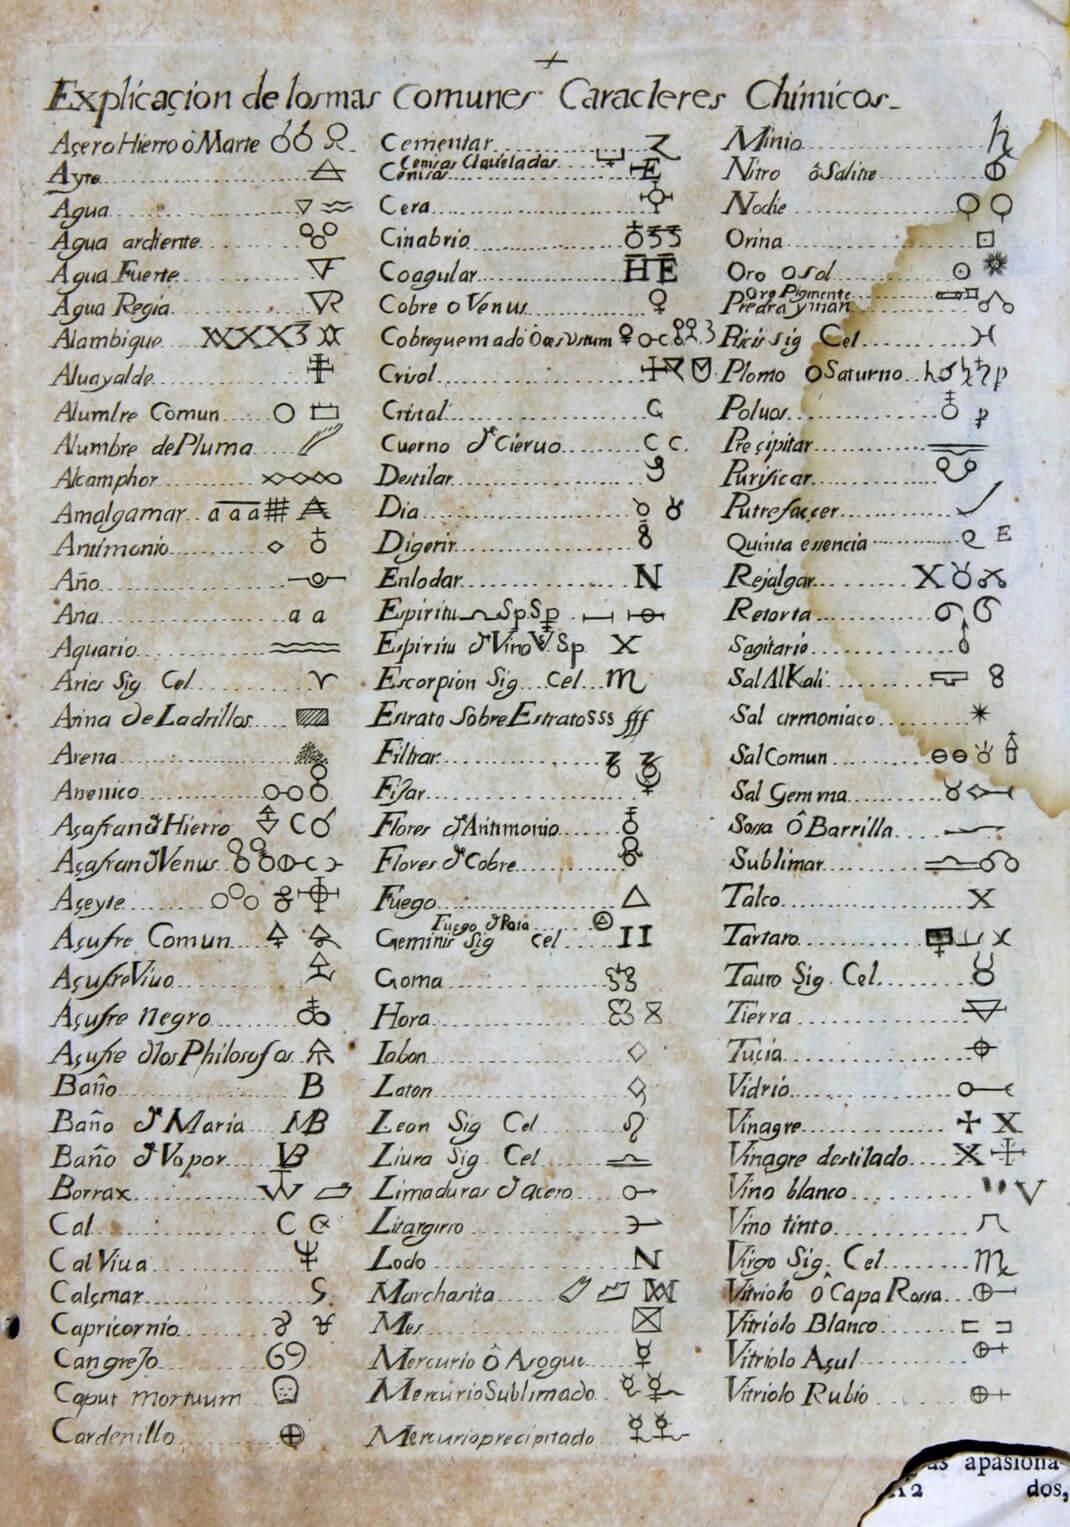 Explicaçion de los mas Comunes Caracteres Chimicos
Açero Hierro ò Marte
Ayre
Agua
Agua ardiente
Agua Fuerte
Agua Regia
Alambique
Aluayalde
Alumbre Comun
Alumbre de Pluma
Alcamphor
Amalgamar a a a
Antimonio
Año
Ana a a
Aquario
Aries Sig Cel
Arina de Ladrillos
Arena
Arsenico
Açafran d Hierro
Açafran d Venus
Açeyte
Açufre Comun
Açufre Viuo
Açufre negro
Açufre d los Philosofos
Baño B
Baño d Maria MB
Baño d Vapor VB
Borrax
Cal C
Cal Viua
Calçinar
Capricornio
Cangrejo
Caput mortuum
Cardenillo
Cementar
Cenisas Claueladas
Cenisas E
Cera
Cinabrio
Coagular H E
Cobre o Venus
Cobre quemado ò æs Ustum
Crisol
Cristal
Cuerno d Cieruo C C.
Destilar
Dia
Digerir
Enlodar N
Espiritu Sp. Sp
Espiritu d Vino V Sp. X
Escorpion Sig. Cel
Estrato Sobre Estrato SSS fff
Filtrar
Fixar
Flores d Antimonio
Flores d Cobre
Fuego
Fuego d Rota
Geminis Sig Cel II
Goma
Hora
Iabon
Laton
Leon Sig Cel
Liura Sig. Cel
Limaduras d acero
Litargirio
Lodo N
Marchasita
Mes
Mercurio ô Asogue
Mercurio Sublimado
Mercurio precipitado
Minio
Nitro ô Salitre
Nodie
Orina
Oro o Sol
Oro Pigmente
Piedra yman
Piscis sig Cel
Plomo o Saturno
Poluos
Preçipitar
Purificar
Putrefaççer
Quinta essencia E
Rejalgar
Retorta
Sagitario
Sal AlKali
Sal armoniaco
Sal Comun
Sal Gemma
Sossa ô Barrilla
Sublimar
Talco X
Tartaro
Tauro Sig. Cel
Tierra
Tucia
Vidrio
Vinagre X
Vinagre destilado X
Vino blanco V
Vino tinto
Virgo Sig. Cel
Vitriolo ô Capa Rossa
Vitriolo Blanco
Vitriolo Açul
Vitriolo Rubio
as apasiona-
dos,